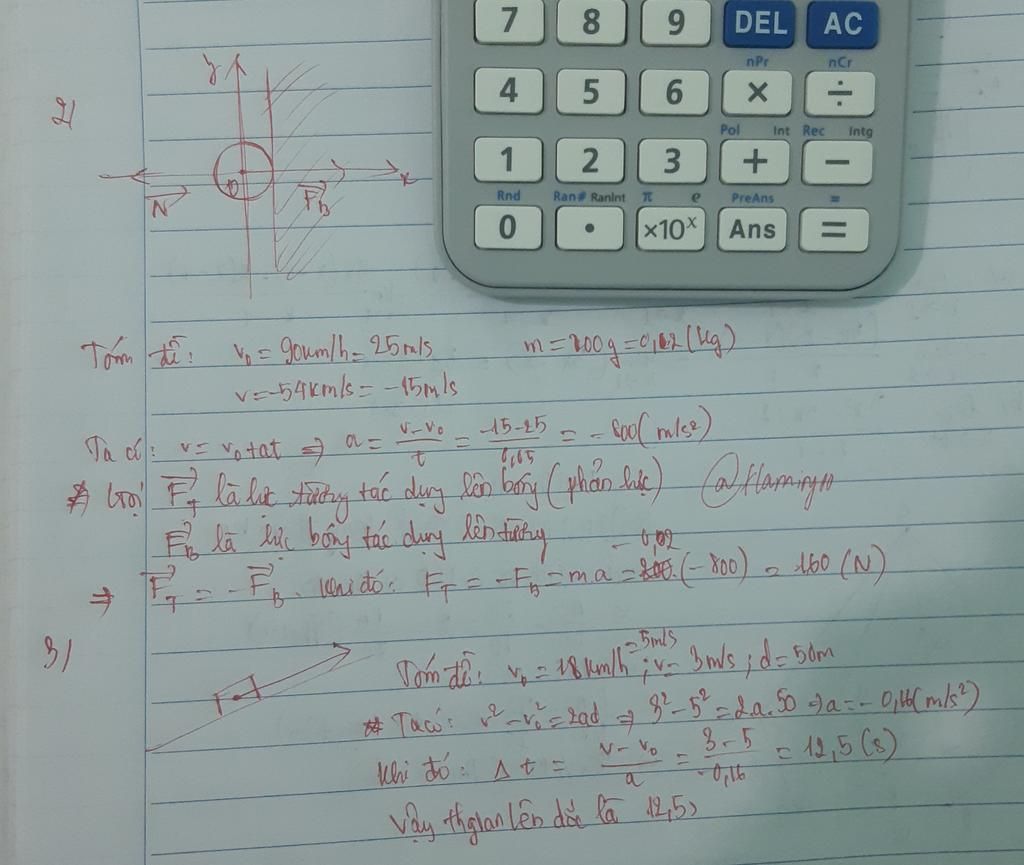 7 8 9 DEL AC
nPr nCr
4 5 6 × ÷
Pol Int Rec Intg
1 2 3 + −
Rnd Ran# RanInt π e PreAns =
0 • ×10ˣ Ans =
2)
y
O
x
N
F_B
Tóm đề: v₀ = 90km/h = 25m/s m = 200g = 0,2 (kg)
v = -54km/s = -15m/s
Ta có: v = v₀ + at ⇒ a = (v - v₀)/t = (-15-25)/0,05 = -800 (m/s²)
Gọi F_T là lực tường tác dụng lên bóng (phản lực) @flamingo
F_B là lực bóng tác dụng lên tường
⇒ F_T = -F_B. Khi đó: F_T = -F_B = ma = -0,02 (-800) = 160 (N)
3)
Tóm đề: v₀ = 18km/h = 5m/s; v = 3m/s; d = 50m
* Ta có: v² - v₀² = 2ad ⇒ 3² - 5² = 2a.50 ⇒ a = -0,16 (m/s²)
Khi đó: Δt = (v - v₀)/a = (3 - 5)/-0,16 = 12,5 (s)
Vậy thgian lên dốc là 12,5s